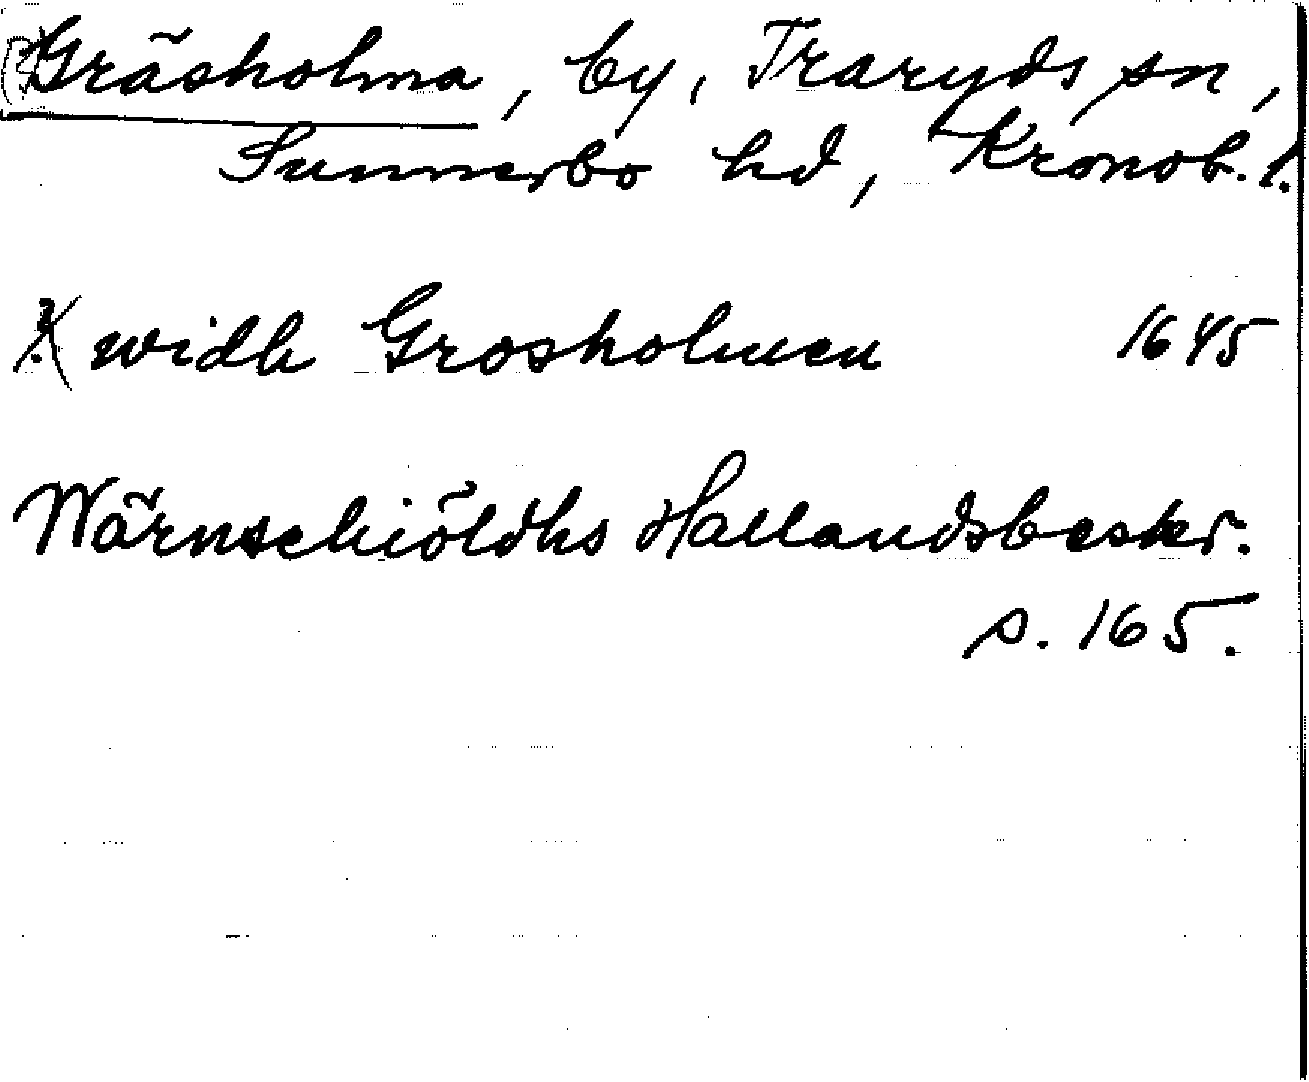 (?) Gräsholma, by, Traryds sn,
Sunnerbo hd, Kronob. l.
widh Grosholmen 1645
Wärnschiöldhs Hallandsbeskr.
s. 165.